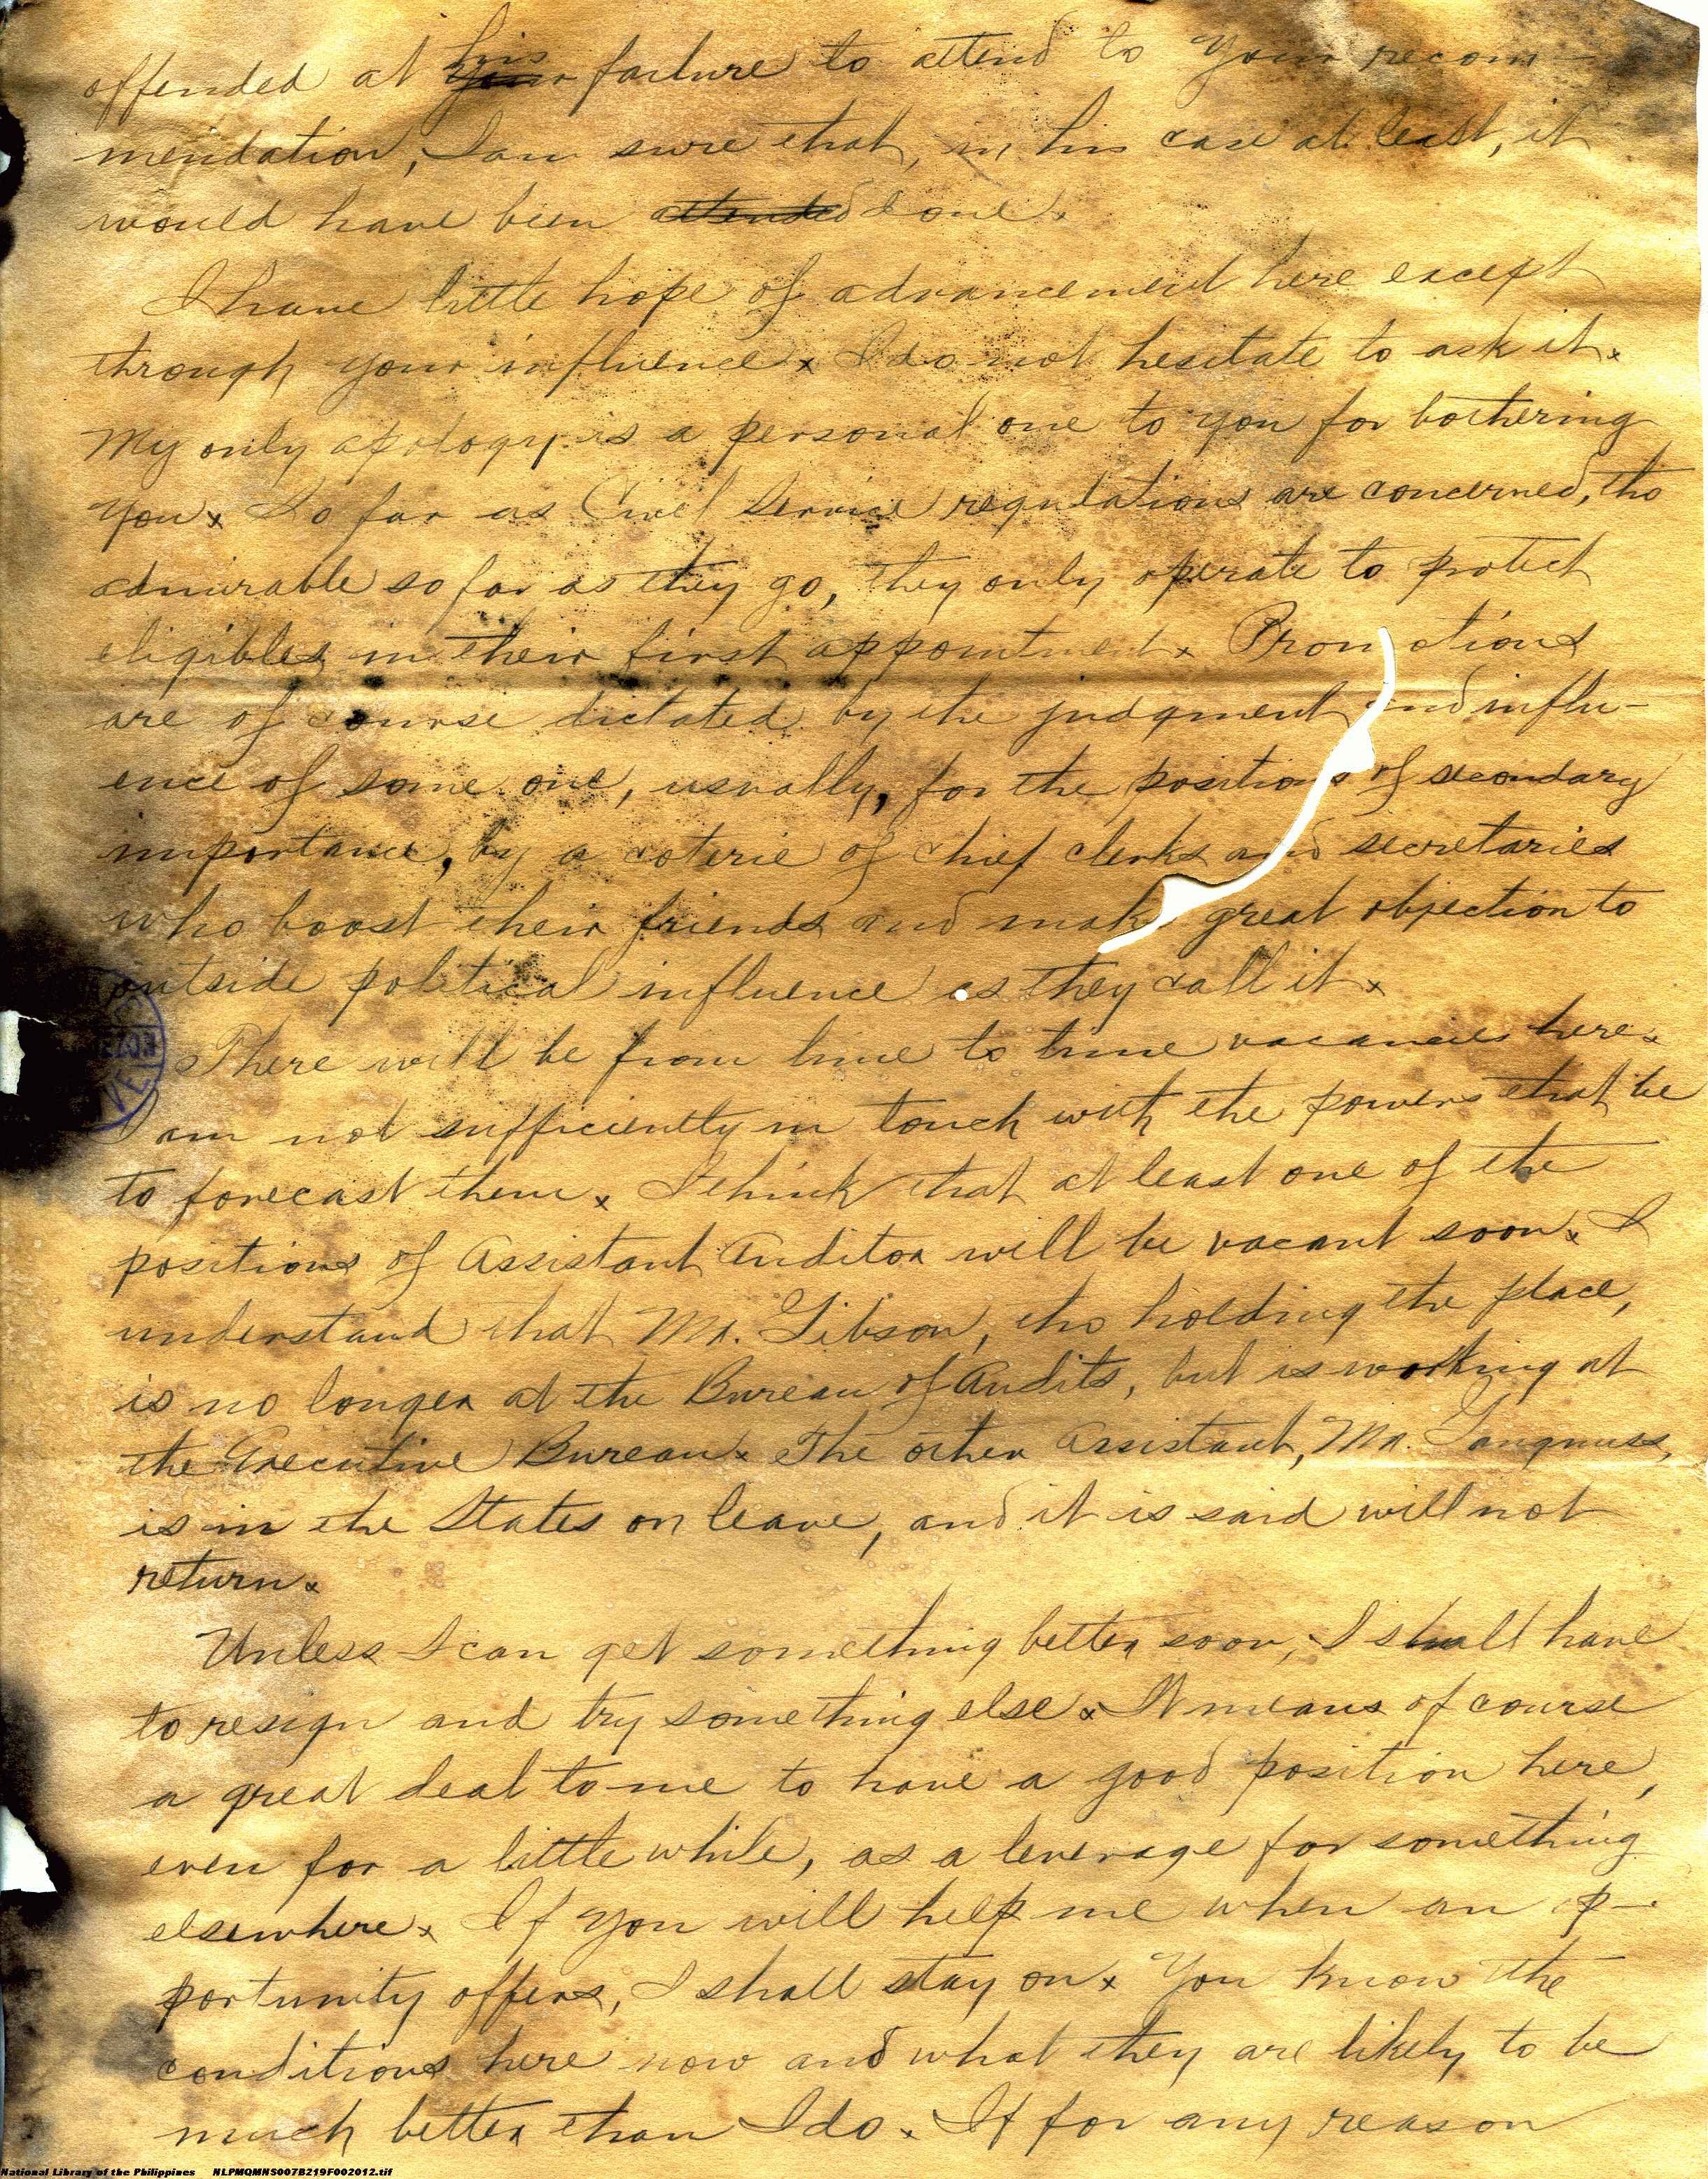 offended at his your failure to attend to your recom-
mendation, I am sure that, in his case at least, it
would have been attended done.
I have little hope of advancement here except
through your influence x I do not hesitate to ask it x
My only apology is a personal one to you for bothering
you x So far as Civil Service regulations are concerned, tho
admirable so far as they go, they only operate to protect
eligibles in their first appointment x Promotions
are of course dictated by the judgment and influ-
ence of some one, usually, for the positions of secondary
importance, by a coterie of chief clerks and secretaries
who boost their friends and make great objection to
outside political influence as they call it x
There will be from time to time vacancies here x
I am not sufficiently in touch with the powers that be
to forecast them x I think that at least one of the
positions of Assistant Auditor will be vacant soon x I
understand that Mr. Gibson, tho holding the place,
is no longer at the Bureau of Audits, but is working at
the Executive Bureau x The other Assistant, Mr.
is in the States on leave, and it is said will not
return x
Unless I can get something better soon, I shall have
to resign and try something else x It means of course
a great deal to me to have a good position here,
even for a little while, as a leverage for something
elsewhere x If you will help me when an op-
portunity offers, I shall stay on x You know the
conditions here now and what they are likely to be
much better than I do x If for any reason
National Library of the Philippines NLPMQMNS007B219F002012.tif